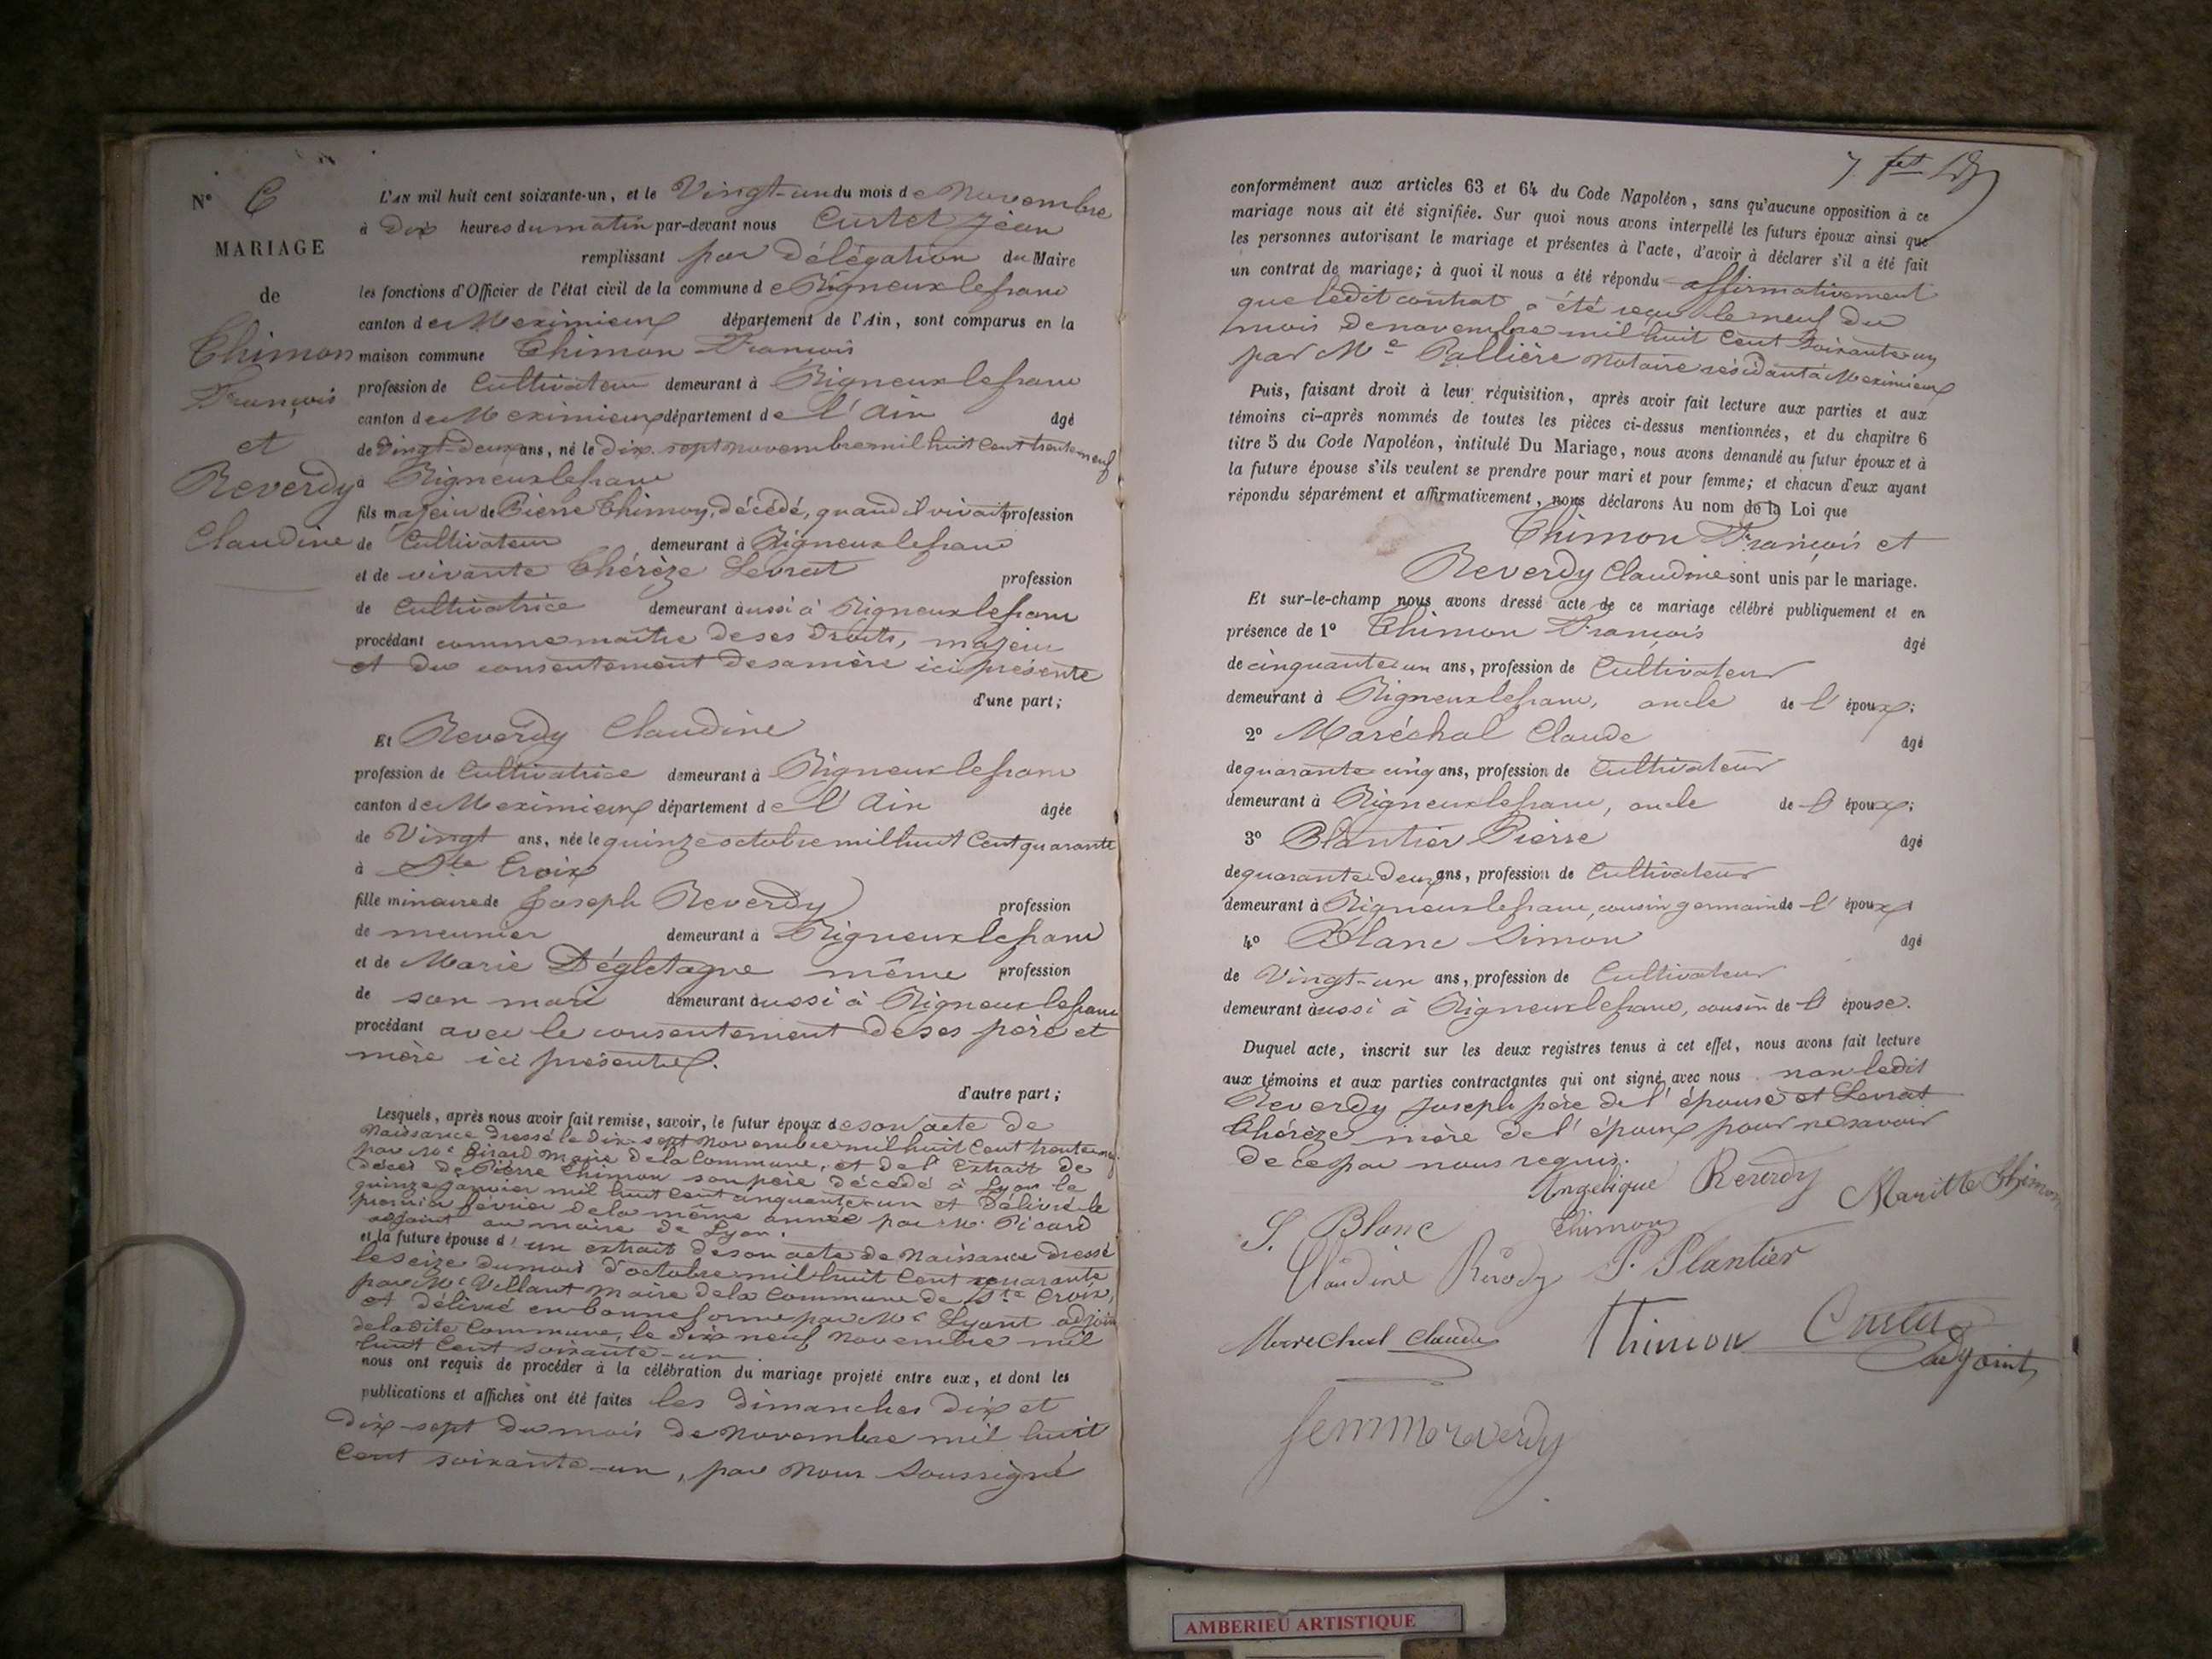 N° 6
MARIAGE
de
Thimon
François
et
Reverdy
Claudine
L'AN mil huit cent soixante-un, et le Vingt-un du mois de Novembre
à Dix heures du matin par-devant nous Curtet Jean
remplissant par Délégation du Maire
les fonctions d'Officier de l'état civil de la commune de Rigneux le franc
canton de Meximieux département de l'Ain, sont comparus en la
maison commune Thimon François
profession de Cultivateur demeurant à Rigneux lefranc
canton de Meximieux département de l'Ain âgé
de Vingt-deux ans, né le Dix-sept novembre mil huit cent trente neuf
à Rigneux lefranc
fils majeur de Pierre Thimon, décédé, quand il vivait profession
de Cultivateur demeurant à Rigneux lefranc
et de vivante Thérèze Levrat profession
de Cultivatrice demeurant aussi à Rigneux lefranc
procédant comme maître de ses droits, majeur
et du consentement de sa mère ici présente
d'une part;
Et Reverdy Claudine
profession de Cultivatrice demeurant à Rigneux lefranc
canton de Meximieux département de l'Ain âgée
de Vingt ans, née le quinze octobre mil huit cent quarante
à Ste Croix
fille mineure de Joseph Reverdy profession
de meunier demeurant à Rigneux lefranc
et de Marie Dégletagne même profession
de son mari demeurant aussi à Rigneux lefranc
procédant avec le consentement de ses père et
mère ici présents.
d'autre part;
Lesquels, après nous avoir fait remise, savoir, le futur époux de son acte de
Naissance dressé le Dix-sept novembre mil huit cent trente neuf
par Mr Girard Maire de la Commune, et de l'Extrait de
décès de Pierre Thimon son père décédé à Lyon le
quinze janvier mil huit cent cinquante-un et Délivré le
premier février de la même année par Mr Picard
adjoint au maire de Lyon.
et la future épouse d'un extrait de son acte de Naissance dressé
le seize du mois d'octobre mil huit cent quarante
par Mr Villant Maire de la Commune de Ste Croix,
et délivré en bonne forme par Mr Lyant adjoint
de la dite Commune, le dix neuf novembre mil
huit cent soixante-un
nous ont requis de procéder à la célébration du mariage projeté entre eux, et dont les
publications et affiches ont été faites les dimanches dix et
Dix-sept du mois de Novembre mil huit
Cent soixante-un, par Nous Soussigné
conformément aux articles 63 et 64 du Code Napoléon, sans qu'aucune opposition à ce
mariage nous ait été signifiée. Sur quoi nous avons interpellé les futurs époux ainsi que
les personnes autorisant le mariage et présentes à l'acte, d'avoir à déclarer s'il a été fait
un contrat de mariage; à quoi il nous a été répondu affirmativement
que ledit contrat a été reçu le neuf du
mois de novembre mil huit cent soixante un
par Me Pallière Notaire résidant à Meximieux
Puis, faisant droit à leur réquisition, après avoir fait lecture aux parties et aux
témoins ci-après nommés de toutes les pièces ci-dessus mentionnées, et du chapitre 6
titre 5 du Code Napoléon, intitulé Du Mariage, nous avons demandé au futur époux et à
la future épouse s'ils veulent se prendre pour mari et pour femme; et chacun d'eux ayant
répondu séparément et affirmativement, nous déclarons Au nom de la Loi que
Thimon François et
Reverdy Claudine sont unis par le mariage.
Et sur-le-champ nous avons dressé acte de ce mariage célébré publiquement et en
présence de 1° Thimon François âgé
de cinquante un ans, profession de Cultivateur
demeurant à Rigneux lefranc, oncle de l'époux;
2° Maréchal Claude âgé
de quarante cinq ans, profession de Cultivateur
demeurant à Rigneux lefranc, oncle de l'époux;
3° Plantier Pierre âgé
de quarante Deux ans, profession de Cultivateur
demeurant à Rigneux lefranc, cousin germain de l'époux
4° Blanc Simon âgé
de Vingt-un ans, profession de Cultivateur
demeurant aussi à Rigneux lefranc, cousin de l'épouse.
Duquel acte, inscrit sur les deux registres tenus à cet effet, nous avons fait lecture
aux témoins et aux parties contractantes qui ont signé avec nous non ledit
Reverdy Joseph père de l'épouse et Levrat
Thérèze mère de l'époux pour ne savoir
de ce par nous requis.
Angélique Reverdy Mariette Thimon
S. Blanc Thimon
Claudine Reverdy P. Plantier
Marechal Claude Thimon Curtet
adjoint
femme reverdy
AMBERIEU ARTISTIQUE